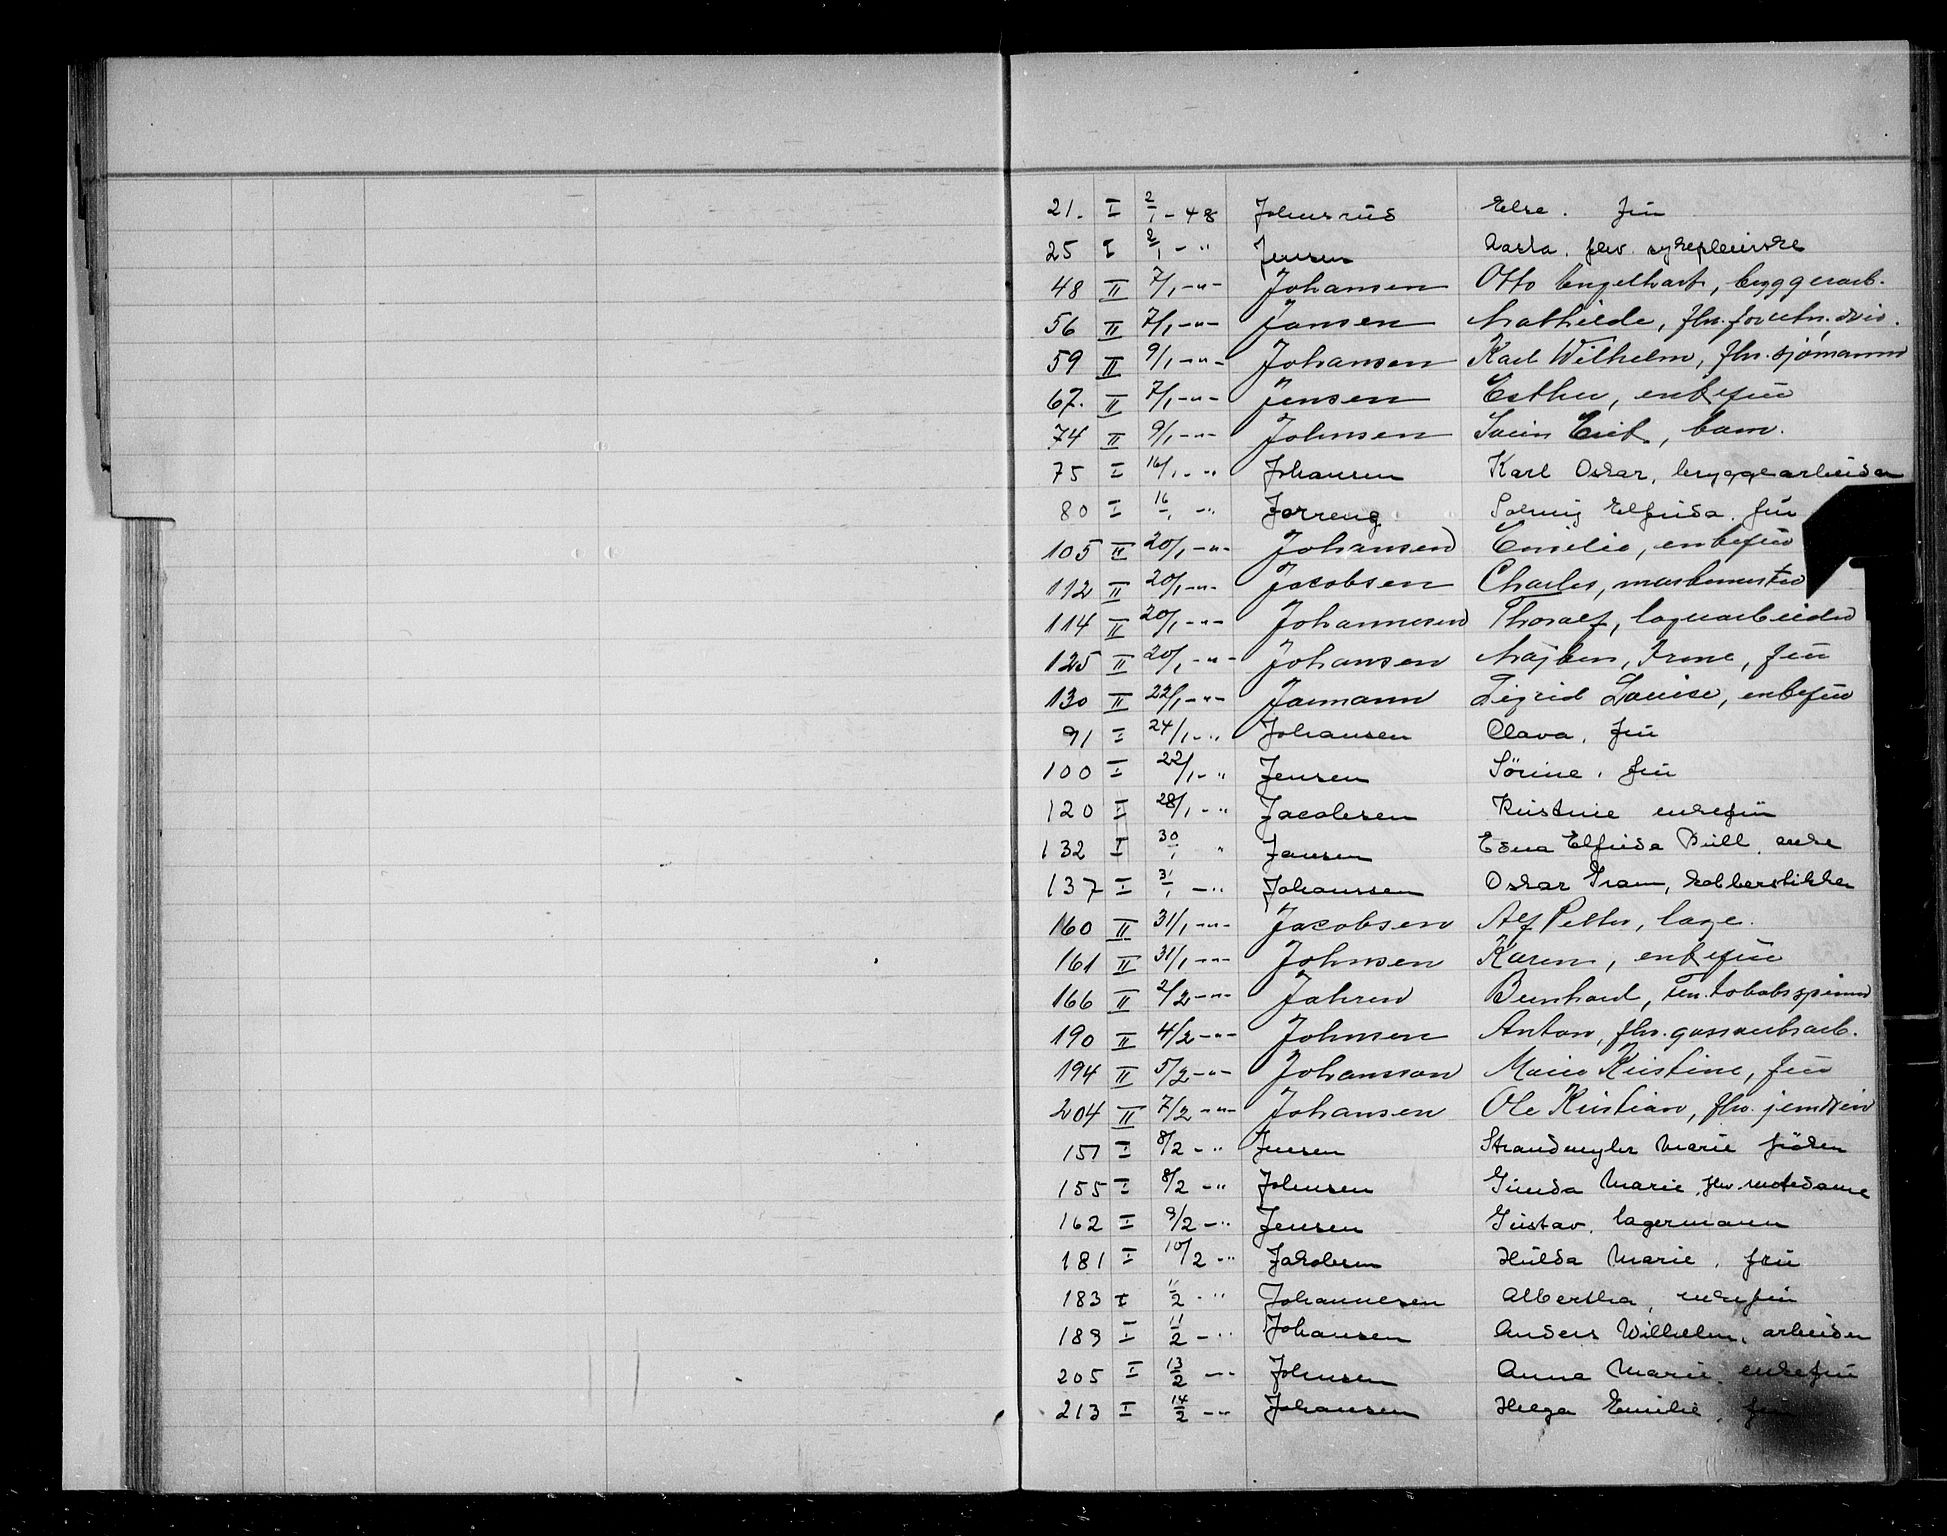 21. I 2/1 - 48 Johnsrud Else. frü
25 I 2/1 - " Jensen Aasta, fhv. sykepleierske
48 II 7/1 -"- Johansen Otto Engelhart, byggearb.
56 II 7/1 -"- Jansen Mathilde, fhv. forretn.driv.
59 II 9/1 -"- Johansen Karl Wilhelm, fhv. sjömann
67. II 7/1 -"- Jensen Esther, enkefrü
74 II 9/1 -"- Johnsen Svein Erik, barn.
75 I 16/1 - " Johansen Karl Oskar, bryggearbeider
80 I 16/1 - " Jorreng Solveig Elfrida. frü
105 II 20/1 -"- Johansen Emilie, enkefrü
112 II 20/1 -"- Jacobsen Charles, maskinmester
114 II 20/1 -"- Johannesen Thoralf, lagerarbeider
125 II 20/1 -"- Johansen Majken, Irene, frü
130 II 22/1 -"- Jarmann Sigrid Louise, enkefrü
91 I 24/1 - " Johansen Olava, frü
100 I 22/1 - " Jensen Sørine, frü
120 I 28/1 - " Jacobsen Kristine enkefrü
132 I 30/1 " Jansen Edna Elfrida Bull, enke
137 I 31/1 - " Johanssen Oskar Gram, kobberstikker
160 II 31/1 -"- Jacobsen Alf Petter, lage.
161 II 31/1 -"- Johnsen Karen, enkefrü
166 II 2/2 -"- Jahren Bernhard, fhv. tobakspinner
190 II 4/2 -"- Johnsen Anton, fhv. gassverksarb.
194 II 5/2 -"- Johansson Marie Kristine, frü
204 II 7/2 -"- Johansen Ole Kristian, fhv. jerndreier
151 I 8/2 - " Jensen Marie fröken
155 I 8/2 - " Johnsen Gunda Marie, fhv. motedame
162 I 9/2 - " Jensen Gustav, lagermann
181 I 10/2 - " Jakobsen Hulda Marie, frü
183 I 11/2 - " Johannesen Albertha, enkefrü
189 I 11/2 - " Johansen Anders Wilhelm, arbeider
205 I 13/2 - " Johnsen Anna Marie, enkefrü
213 I 14/2 - " Johansen Helga Emilie, frü